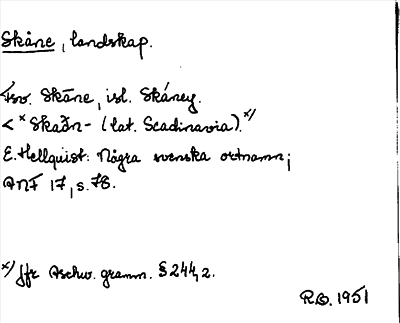 Skåne, landskap.
Fsv. Skāne, isl. Skáney.
< *Skaðn- (lat. Scadinavia).x)
E. Hellquist: Några svenska ortnamn;
ANF 17, s. 78.
x) Jfr Aschw. gramm. § 244, 2.
R.O. 1951